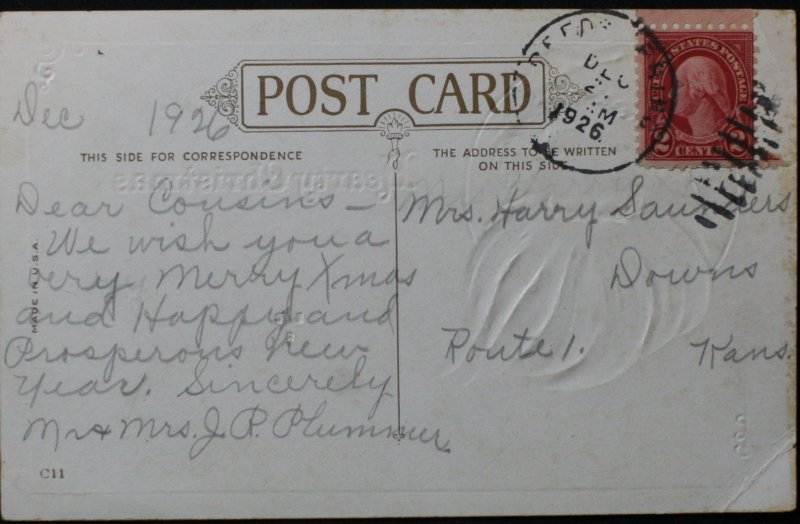 POST CARD
Dec 1926
THIS SIDE FOR CORRESPONDENCE
THE ADDRESS TO BE WRITTEN
ON THIS SIDE
Dear Cousins —
We wish you a
very Merry Xmas
and Happy and
Prosperous New
Year. Sincerely
Mr & Mrs. J. P. Plummer
Mrs. Harry Saunders
Downs
Route 1. Kans.
MADE IN U.S.A.
C11
DEC
M
1926
UNITED STATES POSTAGE
2 CENTS 2
Merry Christmas